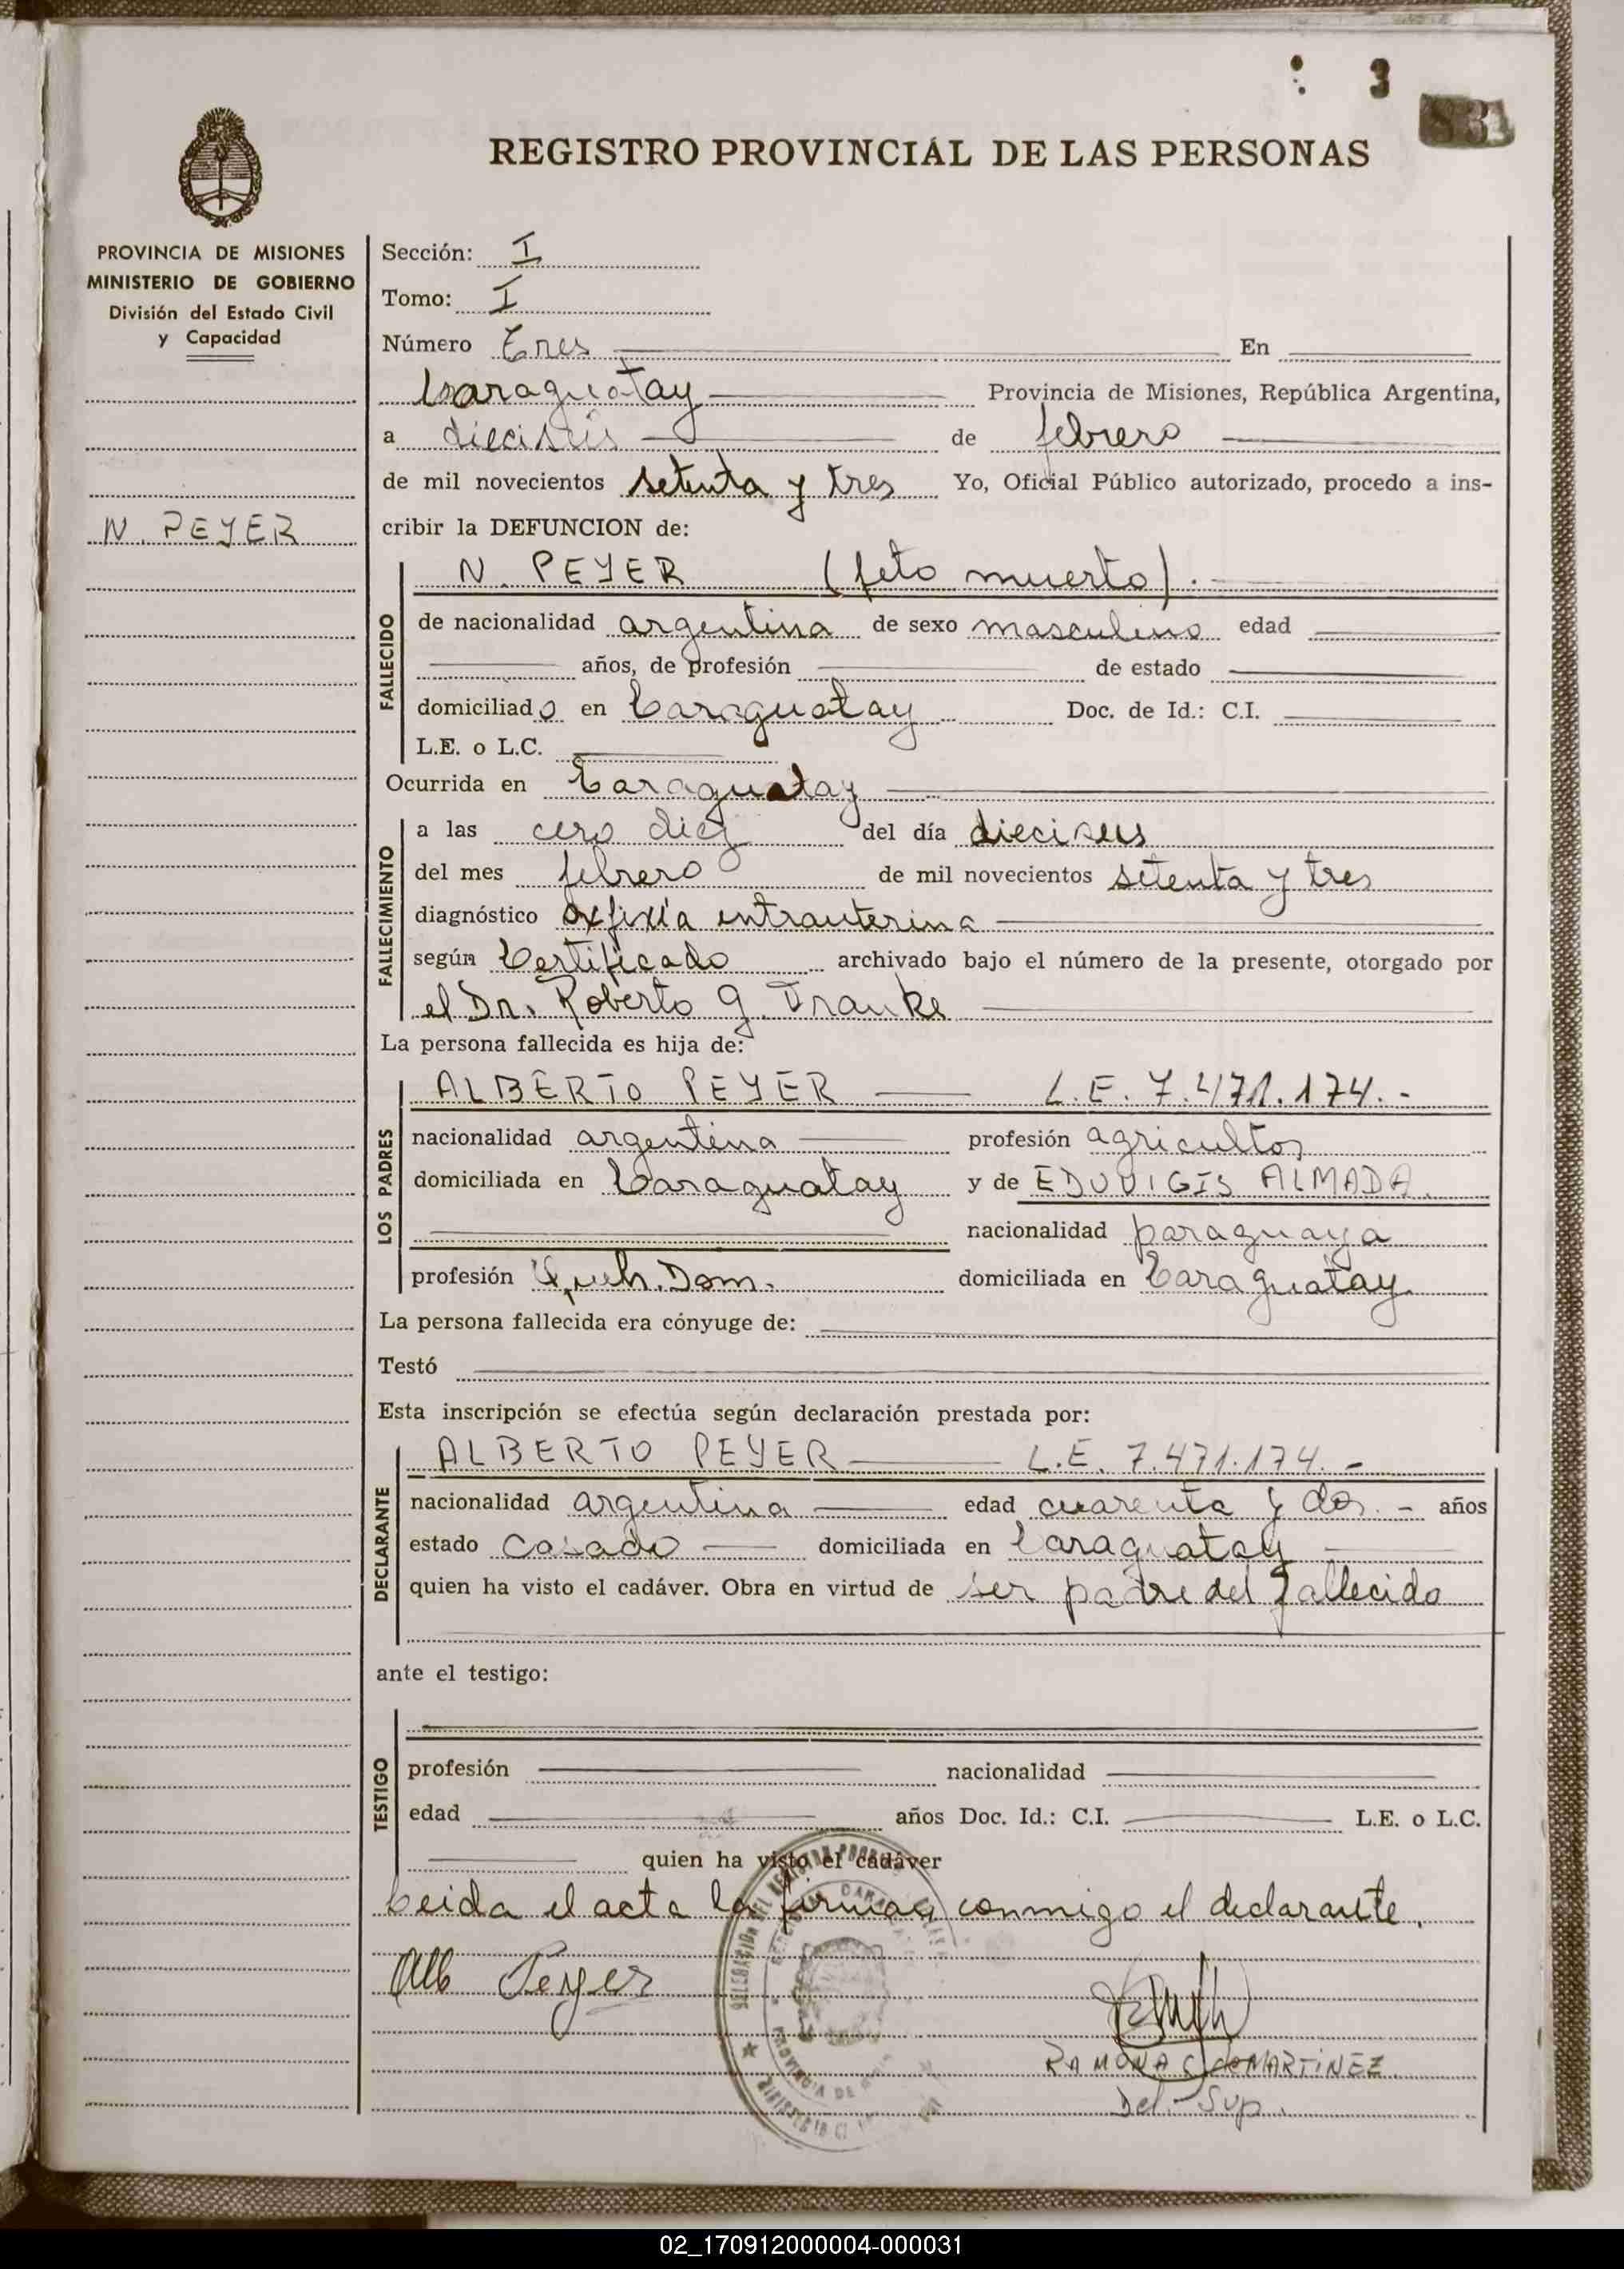 3
REGISTRO PROVINCIAL DE LAS PERSONAS
PROVINCIA DE MISIONES
MINISTERIO DE GOBIERNO
División del Estado Civil
y Capacidad
N. PEYER
Sección: I
Tomo: I
Número Tres En
Caraguatay Provincia de Misiones, República Argentina,
a dieciseis de febrero
de mil novecientos setenta y tres Yo, Oficial Público autorizado, procedo a ins-
cribir la DEFUNCION de:
N. PEYER (feto muerto).
FALLECIDO
de nacionalidad argentina de sexo masculino edad
años, de profesión de estado
domiciliado en Caraguatay Doc. de Id.: C.I.
L.E. o L.C.
Ocurrida en Caraguatay
FALLECIMIENTO
a las cero diez del día dieciseis
del mes febrero de mil novecientos setenta y tres
diagnóstico axfixía intrauterina
según Certificado archivado bajo el número de la presente, otorgado por
el Dr. Roberto G. Franke
La persona fallecida es hija de:
LOS PADRES
ALBERTO PEYER L.E. 7.471.174.-
nacionalidad argentina profesión agricultor
domiciliada en Caraguatay y de EDUVIGIS ALMADA.
nacionalidad paraguaya
profesión Queh. Dom. domiciliada en Caraguatay.
La persona fallecida era cónyuge de:
Testó
Esta inscripción se efectúa según declaración prestada por:
DECLARANTE
ALBERTO PEYER L.E. 7.471.174.-
nacionalidad argentina edad cuarenta y dos.- años
estado casado domiciliada en Caraguatay
quien ha visto el cadáver. Obra en virtud de ser padre del fallecido
ante el testigo:
TESTIGO
profesión nacionalidad
edad años Doc. Id.: C.I. L.E. o L.C.
quien ha visto el cadáver
Leida el acta la firman conmigo el declarante.
Alb Peyer
RAMONA G de MARTINEZ.
Del. Sup.
PROVINCIA DE
02_170912000004-000031